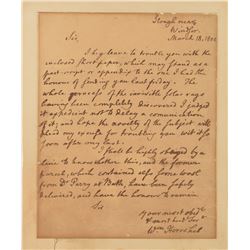 Slough near
Windsor.
March 18, 1800
Sir,
I beg leave to trouble you with the
enclosed short paper, which may stand as a
post-script or appendix to the one I had the
honour of sending you last friday. The
whole process of the invisible solar rays
having been completely discovered I judged
it expedient not to delay a communication
of it; and hope the novelty of the subject will
plead my excuse for troubling you with it so
soon after my last.
I shall be highly obliged by a
line to know whether this, and the former
parcel, which contained also some wool
from Dr Parry at Bath have been safely
delivered, and have the honour to remain
Sir
your most obedt
& most humble Servt
Wm Herschel